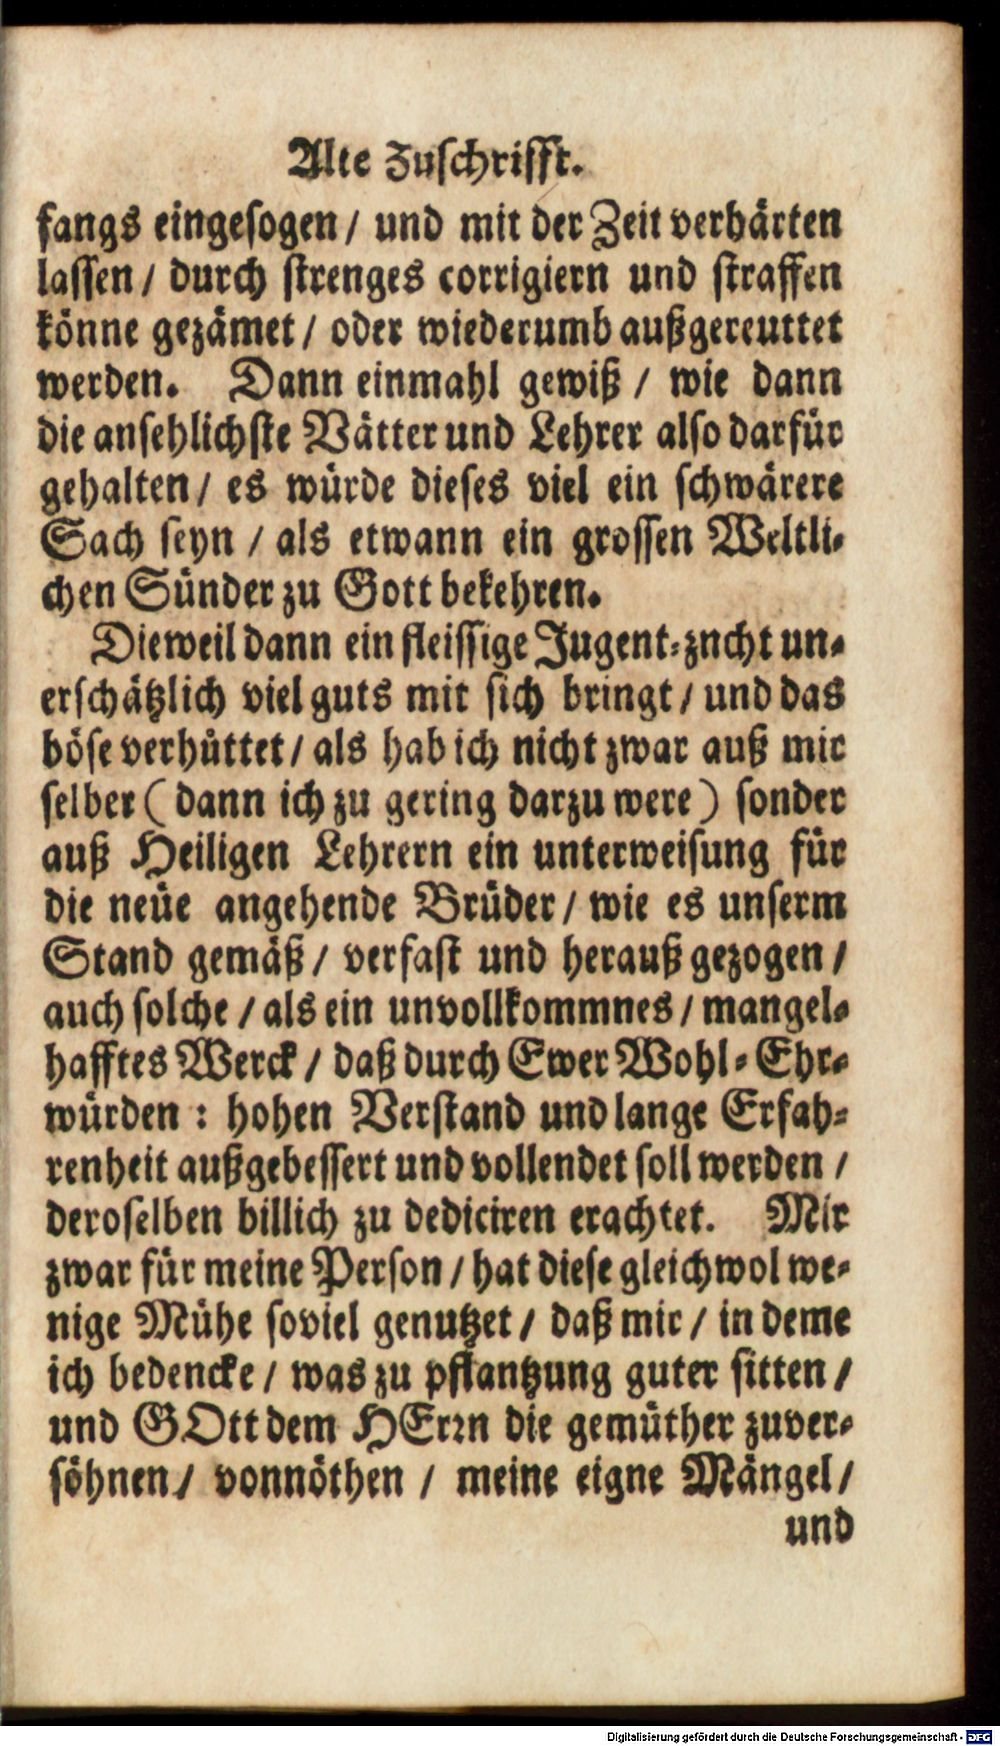 Alte Zuschrifft.
fangs eingesogen / und mit der Zeit verhärten
lassen / durch strenges corrigiern und straffen
könne gezämet / oder wiederumb außgereuttet
werden. Dann einmahl gewiß / wie dann
die ansehlichste Vätter und Lehrer also darfür
gehalten / es würde dieses viel ein schwärere
Sach seyn / als etwann ein grossen Weltli-
chen Sünder zu Gott bekehren.
Dieweil dann ein fleissige Jugent-zncht un-
erschätzlich viel guts mit sich bringt / und das
böse verhüttet / als hab ich nicht zwar auß mir
selber ( dann ich zu gering darzu were ) sonder
auß Heiligen Lehrern ein unterweisung für
die neüe angehende Brüder / wie es unserm
Stand gemäß / verfast und herauß gezogen /
auch solche / als ein unvollkommnes / mangel-
hafftes Werck / daß durch Ewer Wohl-Ehr-
würden : hohen Verstand und lange Erfah-
renheit außgebessert und vollendet soll werden /
deroselben billich zu dediciren erachtet. Mir
zwar für meine Person / hat diese gleichwol we-
nige Mühe soviel genutzet / daß mir / in deme
ich bedencke / was zu pflantzung guter sitten /
und GOtt dem HErꝛn die gemüther zuver-
söhnen / vonnöthen / meine eigne Mängel /
und
Digitalisierung gefördert durch die Deutsche Forschungsgemeinschaft - DFG